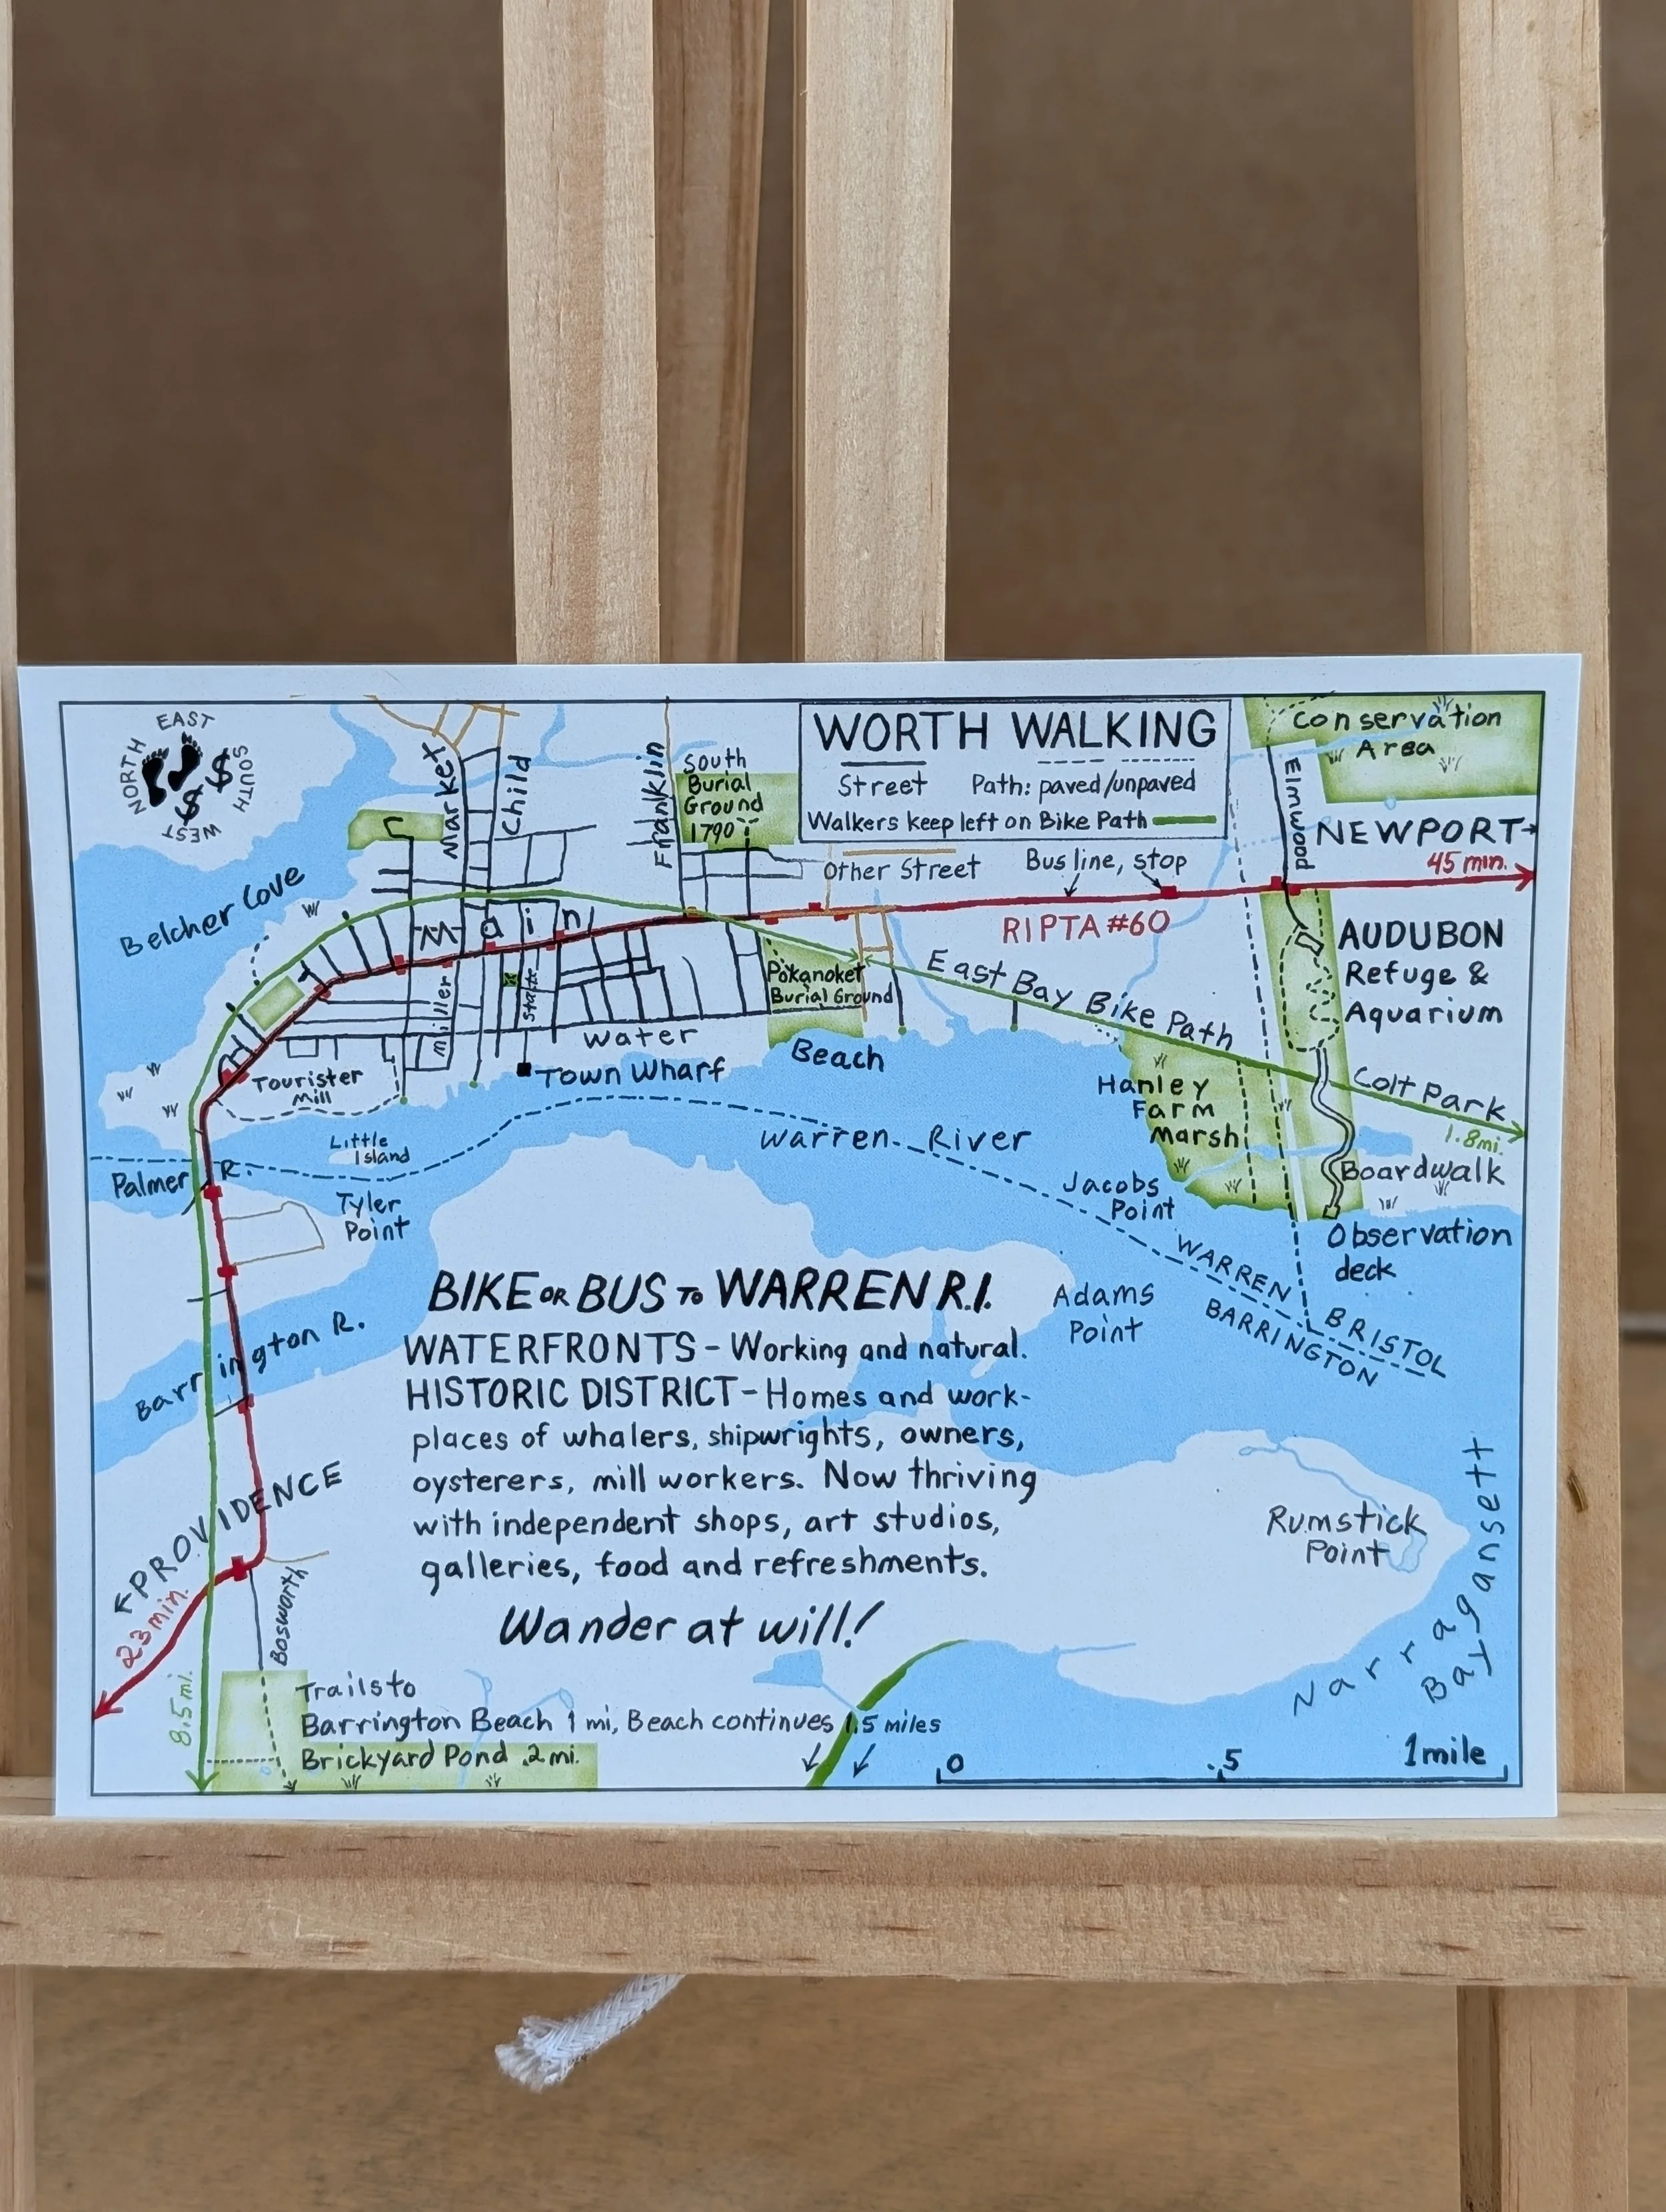 EAST
NORTH
SOUTH
WEST
$
$
WORTH WALKING
Street Path: paved/unpaved
Walkers keep left on Bike Path
Other Street
Bus line, stop
RIPTA #60
Conservation
Area
Elmwood
NEWPORT→
45 min.
Market
Child
Franklin
South
Burial
Ground
1790
Belcher Cove
Main
Miller
State
Water
Pokanoket
Burial Ground
Beach
Town Wharf
Tourister
Mill
East Bay Bike Path
AUDUBON
Refuge &
Aquarium
Colt Park
1.8mi.
Hanley
Farm
Marsh
Boardwalk
Observation
deck
Little
Island
Warren River
Palmer R.
Tyler
Point
Jacobs
Point
WARREN
BARRINGTON
BRISTOL
Adams
Point
Barrington R.
BIKE OR BUS TO WARREN R.I.
WATERFRONTS - Working and natural.
HISTORIC DISTRICT - Homes and work-
places of whalers, shipwrights, owners,
oysterers, mill workers. Now thriving
with independent shops, art studios,
galleries, food and refreshments.
Wander at will!
Rumstick
Point
Narragansett
Bay
←PROVIDENCE
23 min.
8.5 mi.
Bosworth
Trails to
Barrington Beach 1 mi, Beach continues 1.5 miles
Brickyard Pond .2 mi.
0 .5 1 mile